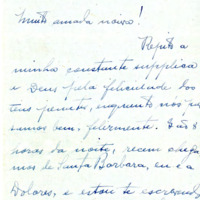 Muito amada noiva!
Repito a
minha constante supplica
a Deus pela felicidade dos
teus
samos bem, felizmente. São 8
horas da noite, recem chega-
mos de Santa Barbara, eu e a
Dolores, e estou te escrevendo